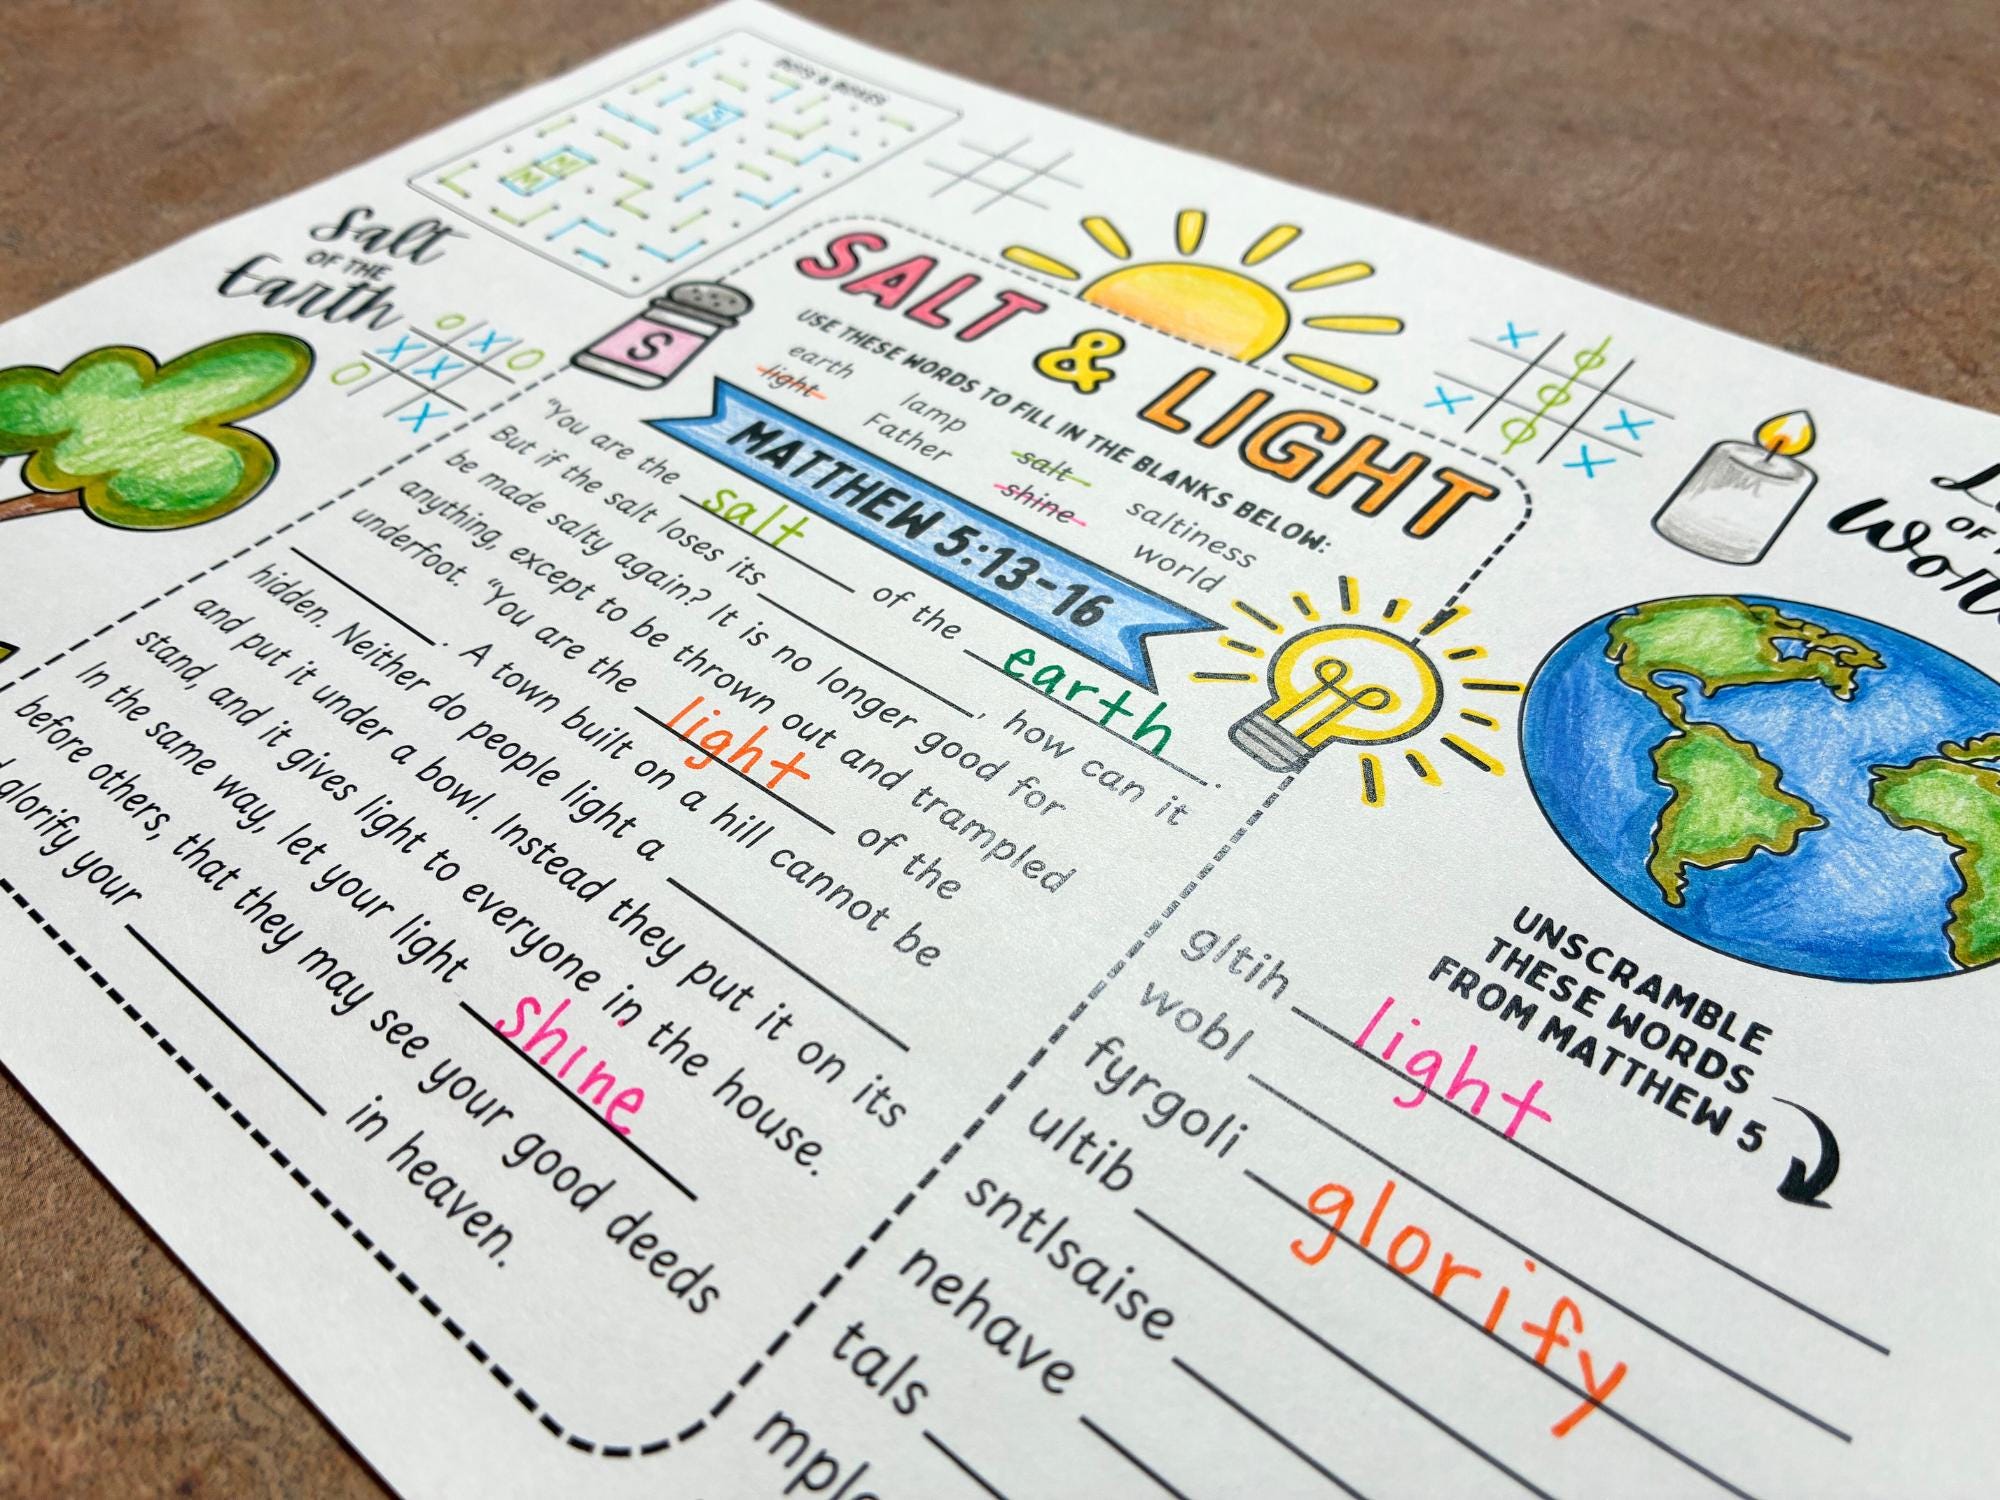 DOTS & BOXES
Salt
OF THE
Earth
O X O
X X
O X
S
SALT & LIGHT
USE THESE WORDS TO FILL IN THE BLANKS BELOW:
earth lamp salt saltiness
light Father shine world
MATTHEW 5:13-16
"You are the salt of the earth.
But if the salt loses its , how can it
be made salty again? It is no longer good for
anything, except to be thrown out and trampled
underfoot. "You are the light of the
. A town built on a hill cannot be
hidden. Neither do people light a
and put it under a bowl. Instead they put it on its
stand, and it gives light to everyone in the house.
In the same way, let your light shine
before others, that they may see your good deeds
glorify your in heaven.
X O
X O
O X
X
OF
UNSCRAMBLE
THESE WORDS
FROM MATTHEW 5
gltih light
wobl
fyrgoli glorify
ultib
sntlsaise
nehave
tals